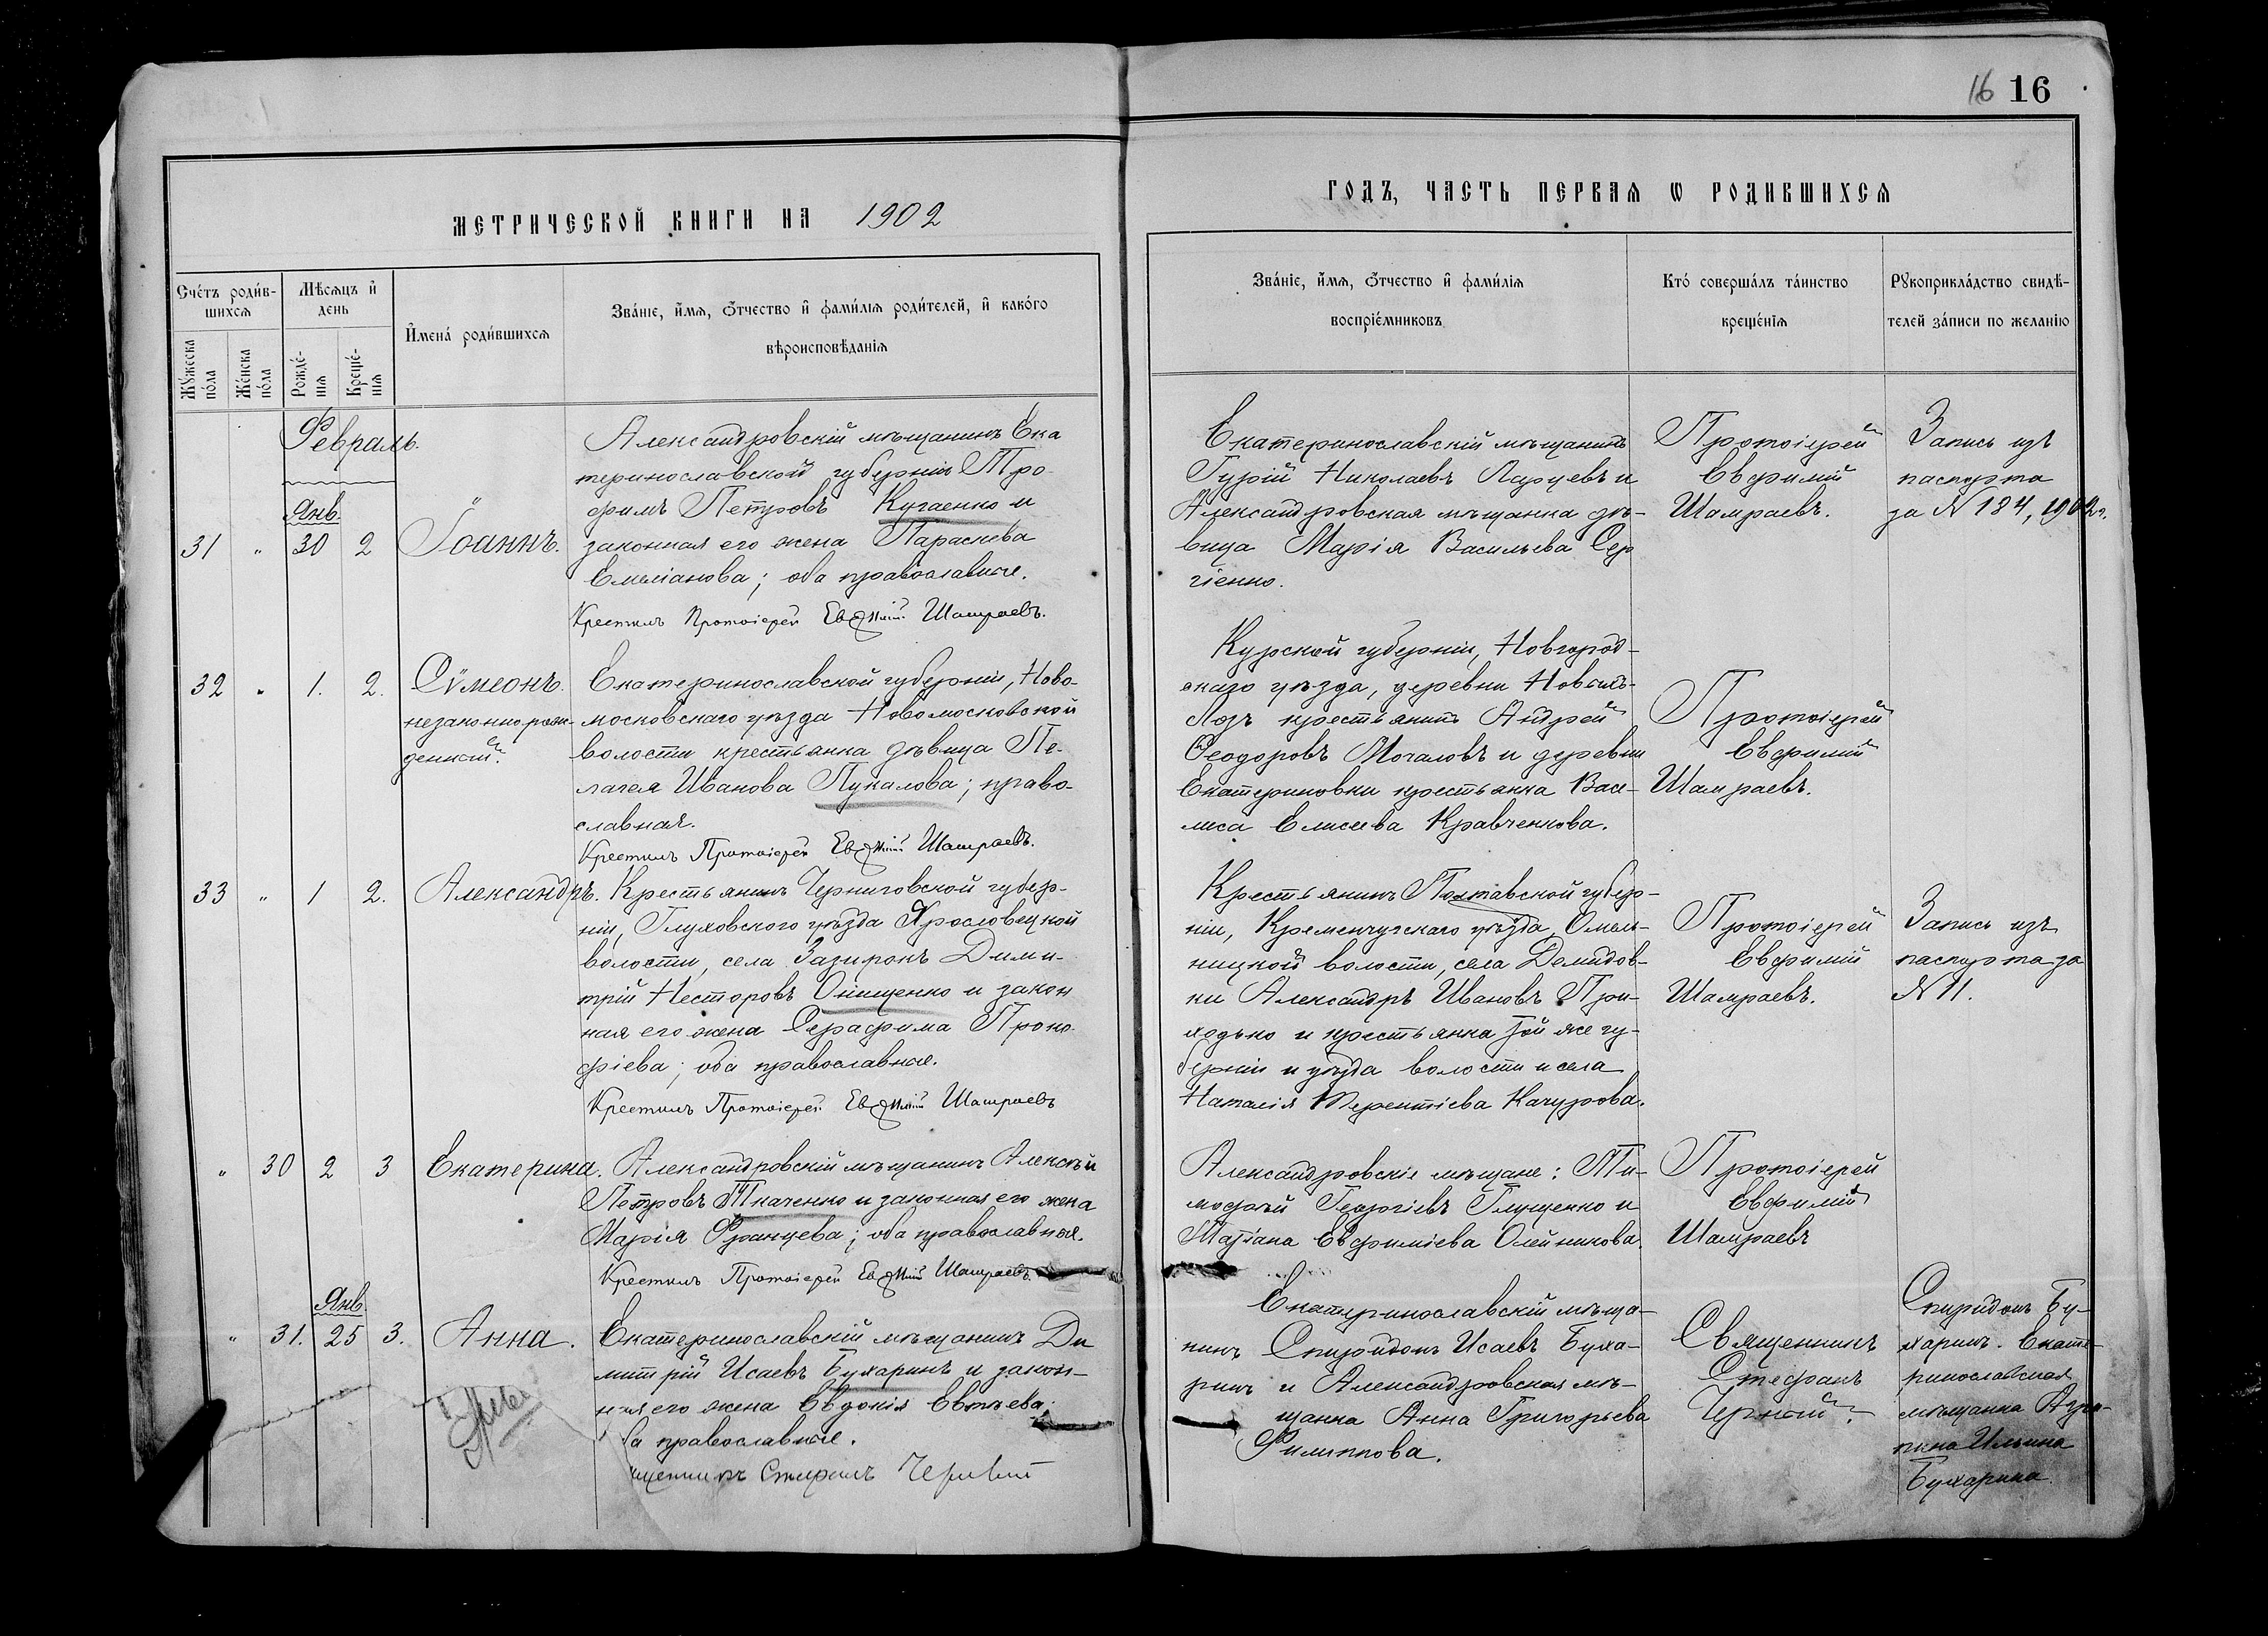 16 16
МЕТРИЧЕСКОЙ КНИГИ НА 1902
ГОДЪ, ЧАСТЬ ПЕРВАѦ Ѡ РОДИВШИХСѦ
Счéтъ роди́в-
шихсѧ
Мꙋ́жеска по́ла
Жéнска по́ла
Мѣ́сѧцъ и҆ день
Рождé-
нїѧ
Крещé-
нїѧ
И҆мена́ роди́вшихсѧ
Зва́нїе, и҆́мѧ, ѻ҆́тчество и҆ фами́лїѧ роди́телей, и҆ како́гѡ
вѣроисповѣ́данїѧ
Зва́нїе, и҆́мѧ, ѻ҆́тчество и҆ фами́лїѧ
воспрїéмниковъ
Кто̀ соверша́лъ та́инство
крещéнїѧ
Рꙋкоприкла́дство свидѣ́-
телей за́писи по жела́нїю
Февраль.
Янв.
31 " 30 2 Іоаннъ.
Александровскій мѣщанинъ Ека
теринославской губерніи Тро-
фимъ Петровъ Кугаенко и
законная его жена Параскева
Емеліанова; оба православные.
Крестилъ Протоіерей Евѳимій Шамраевъ.
Екатеринославскій мѣщанинъ
Гурій Николаевъ Ларцевъ и
Александровская мѣщанка дѣ-
вица Марія Васильева Сер
гіенко.
Протоіерей
Евфимій
Шамраевъ.
Запись изъ
паспорта
за № 184, 1902 г.
32 " 1. 2. Сѵмеонъ.
незаконнорож-
денный.
Екатеринославской губерніи, Ново-
московскаго уѣзда Новомосковской
волости крестьянка дѣвица Пе-
лагея Иванова Пукалова; право-
славная.
Крестилъ Протоіерей Евѳимій Шамраевъ.
Курской губерніи, Новгород-
скаго уѣзда, деревни
крестьянинъ Андрей
Ѳеодоровъ Мочаловъ и деревни
Екатериновки крестьянка Васи-
лиса Елисеева Кравченкова.
Протоіерей
Евфимій
Шамраевъ.
33 " 1 2. Александръ.
Крестьянинъ Черниговской губер-
ніи, Глуховского уѣзда Ярославецкой
волости, села Зазирокъ Дими-
трій Несторовъ Онищенко и закон
ная его жена Серафима Проко-
фіева; оба православные.
Крестилъ Протоіерей Евѳимій Шамраевъ
Крестьянинъ Полтавской губер-
ніи, Кременчугскаго уѣзда, Омель-
ницкой волости, села Демидов-
ки Александръ Ивановъ При-
ходько и крестьянка той же гу-
берніи и уѣзда волости и села
Наталія Терентіева Качурова.
Протоіерей
Евфимій
Шамраевъ.
Запись изъ
паспорта за
№ 11.
" 30 2 3 Екатерина.
Александровскій мѣщанинъ Алексѣй
Петровъ Ткаченко и законная его жена
Марія Францева; оба православные.
Крестилъ Протоіерей Евѳимій Шамраевъ.
Александровскіе мѣщане: Ти-
мофей Георгіевъ Глущенко и
Татіана Евфиміева Олейникова.
Протоіерей
Евфимій
Шамраевъ
Янв.
" 31. 25 3. Анна.
Екатеринославскій мѣщанинъ Ди
митрій Исаевъ Бухаринъ и закон-
ная его жена Евдокія Евтѣева;
ба православные.
щенникъ Стефанъ Черный
Екатеринославскій мѣща-
нинъ Спиридонъ Исаевъ Буха-
ринъ и Александровская мѣ-
щанка Анна Григорьева
Филиппова.
Священникъ
Стефанъ
Черный.
Спиридонъ Бу-
харинъ. Екате-
ринославская
мѣщанка Агри-
пина Ильина
Бухарина.